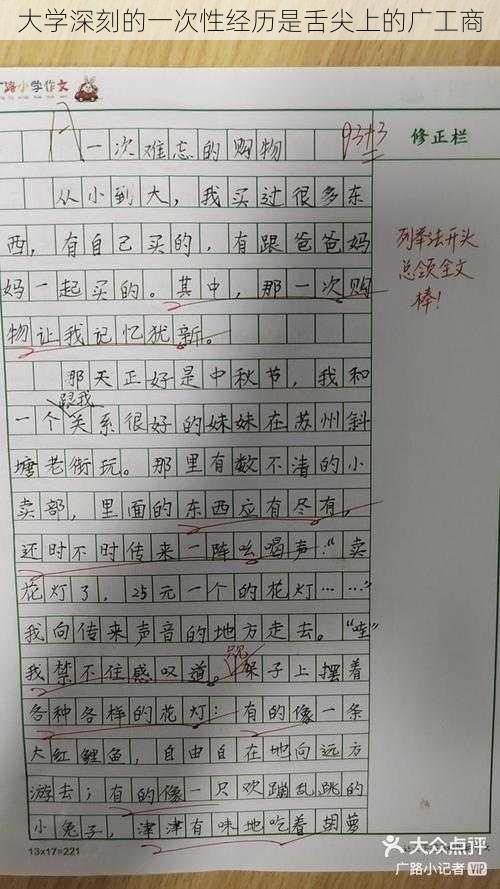 大学深刻的一次性经历是舌尖上的广工商
广路小学作文
A
一次难忘的购物
93+3
修正栏
从小到大，我买过很多东
西，有自己买的，有跟爸爸妈
妈一起买的。其中，那一次购
物让我记忆犹新。
列举法开头
总领全文
棒！
那天正好是中秋节，我和
跟我
一个关系很好的妹妹在苏州斜
塘老街玩。那里有数不清的小
卖部，里面的东西应有尽有，
还时不时传来一阵吆喝声：“卖
花灯了，25元一个的花灯……”
我向传来声音的地方走去。“哇”
我禁不住感叹道。架子上摆着
各种各样的花灯：有的像一条
大红鲤鱼，自由自在地向远方
游去；有的像一只欢蹦乱跳的
小兔子，津津有味地吃着胡萝
13×17=221
大众点评
广路小记者 VIP